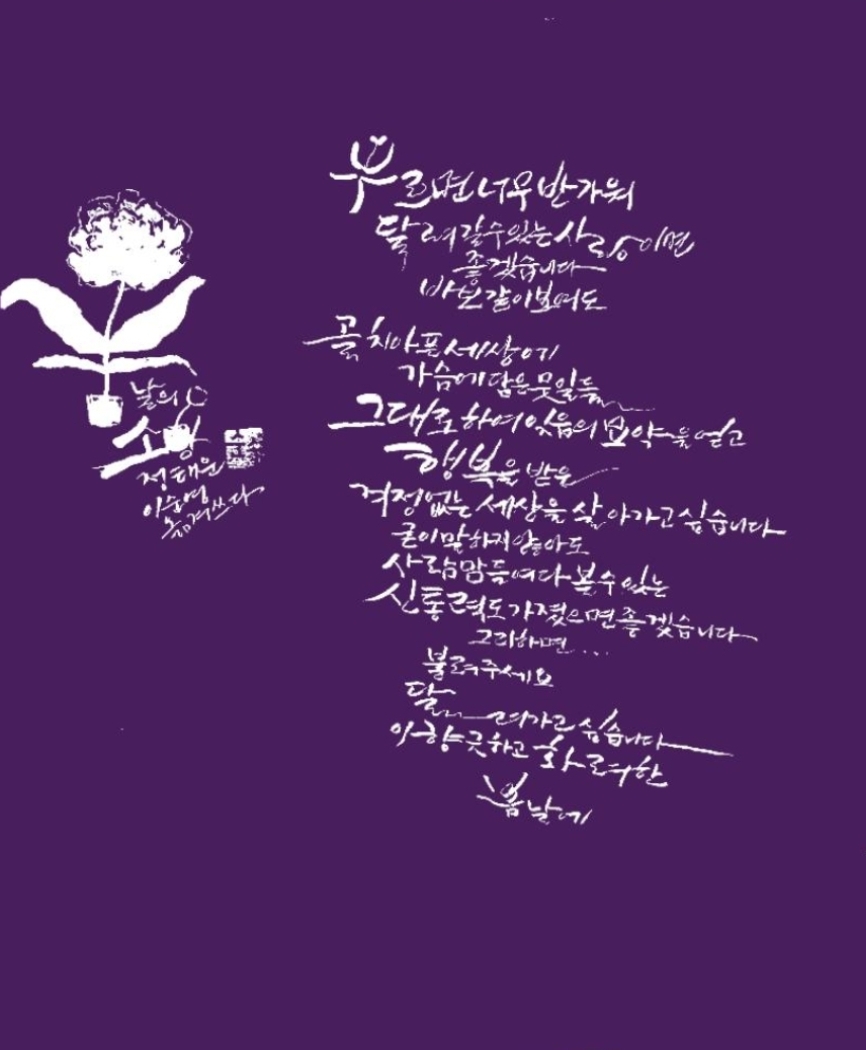 부르면 너무 반가워
달려갈 수 있는 사랑이면
좋겠습니다
바보같이 보여도
골치아픈 세상에
가슴에 담은 뭇 일들
그대로 하여 있음의 보약을 얻고
행복을 받은
걱정없는 세상을 살아가고 싶습니다
굳이 말하지 않아도
사람맘 들여다 볼 수 있는
신통력도 가졌으면 좋겠습니다
그리하면...
불려주세요
달려가고 싶습니다
이 향긋하고 화려한
봄날에
날의
소망
정태운
이순영
옮겨쓰다